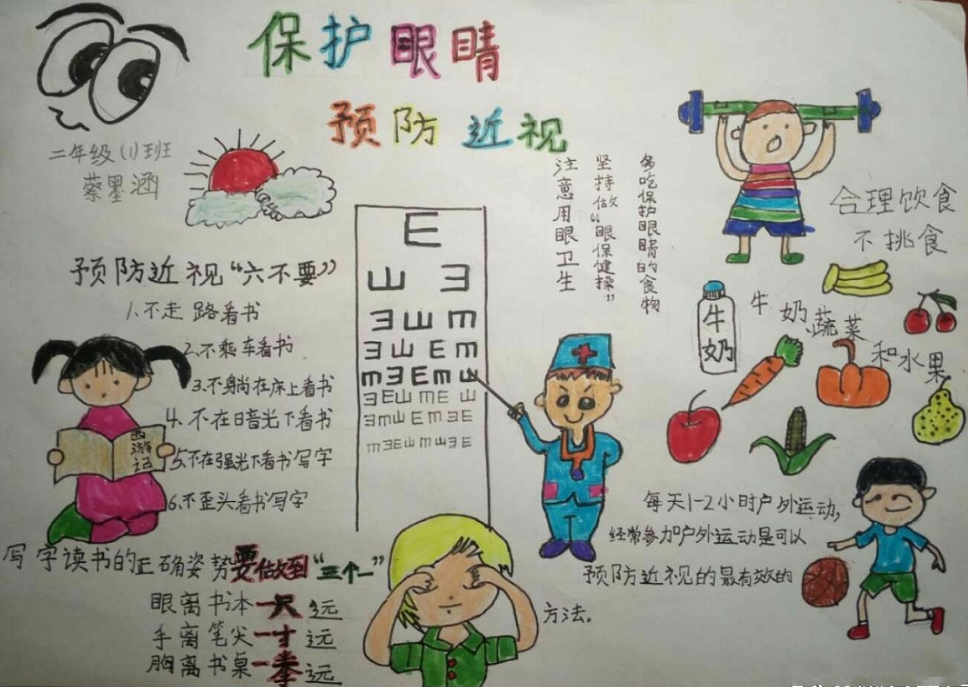 保护眼睛
预防近视
二年级(1)班
蔡墨涵
多吃保护眼睛的食物
坚持做“眼保健操”
注意用眼卫生
合理饮食
不挑食
牛奶
牛奶、蔬菜
和水果
预防近视“六不要”
1.不走路看书
2.不乘车看书
3.不躺在床上看书
4.不在暗光下看书
5.不在强光下看书写字
6.不歪头看书写字
西游记
E
每天1-2小时户外运动,
经常参加户外运动是可以
预防近视的最有效的
方法。
写字读书的正确姿势要做到“三个一”
眼离书本一尺远
手离笔尖一寸远
胸离书桌一拳远